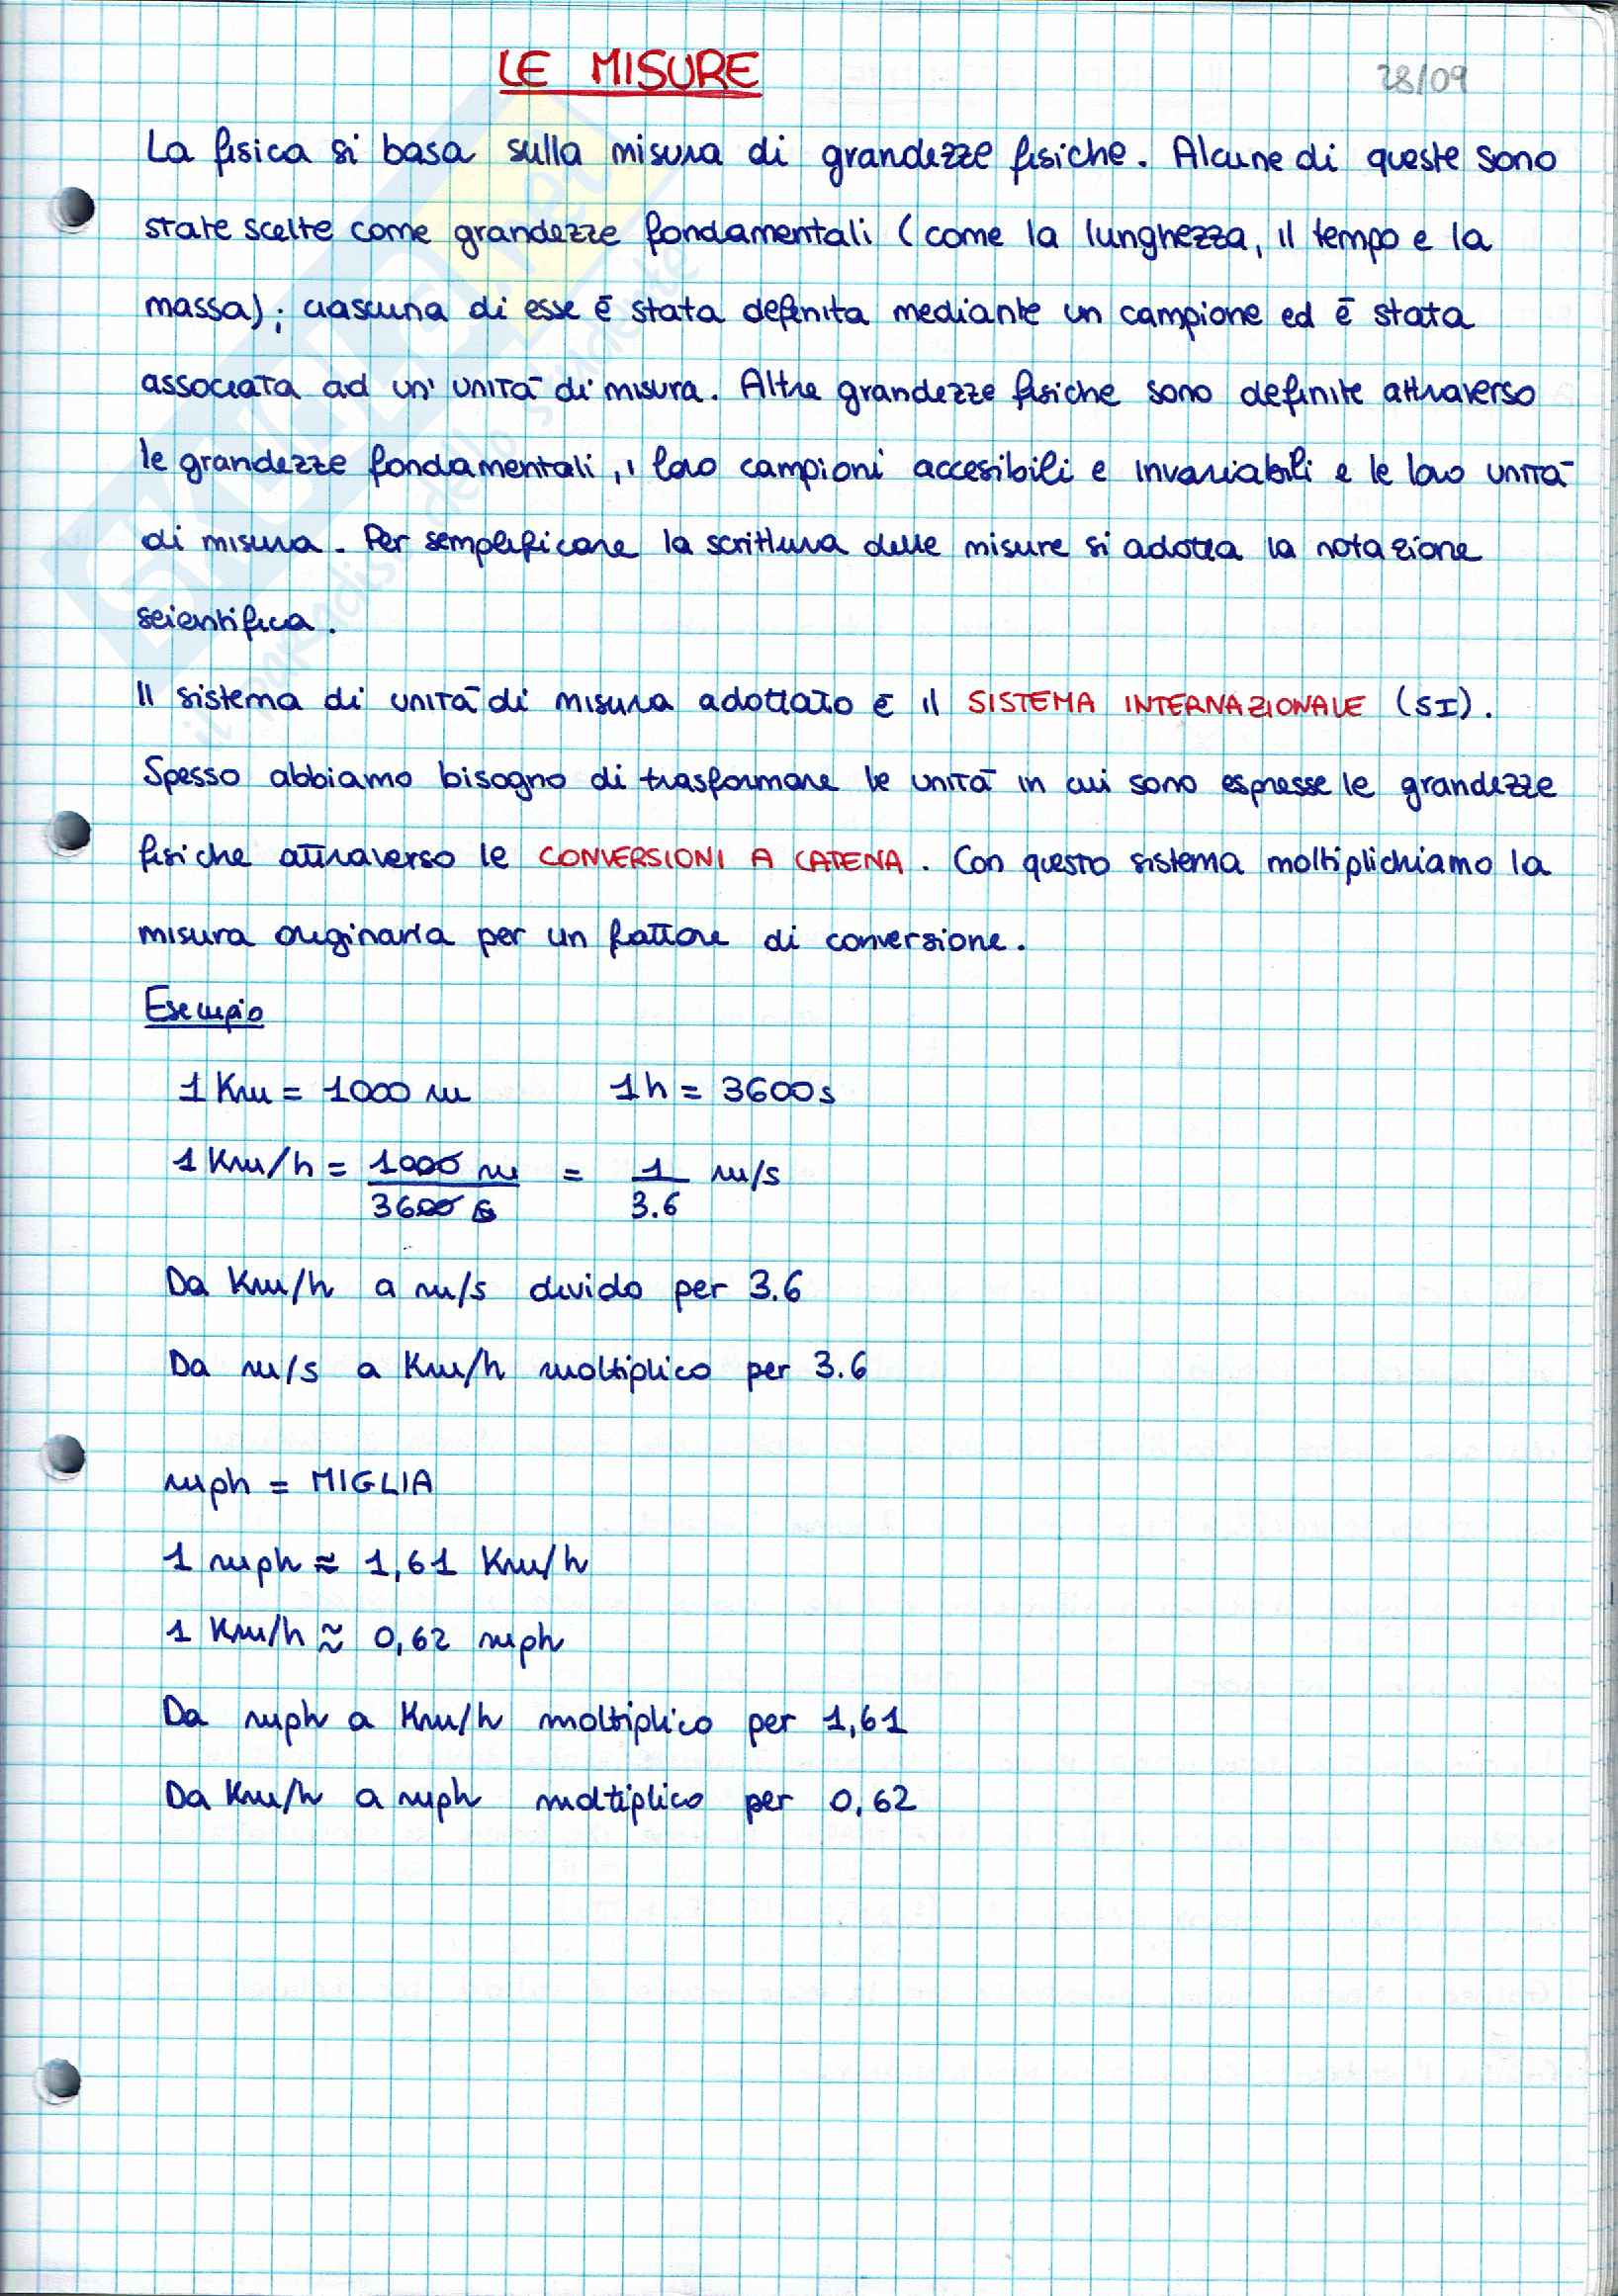 LE MISURE
28/09
La fisica si basa sulla misura di grandezze fisiche. Alcune di queste sono
state scelte come grandezze fondamentali (come la lunghezza, il tempo e la
massa); ciascuna di esse è stata definita mediante un campione ed è stata
associata ad un' unità di misura. Altre grandezze fisiche sono definite attraverso
le grandezze fondamentali, i loro campioni accesibili e invariabili e le loro unità
di misura. Per semplificare la scrittura delle misure si adotta la notazione
scientifica.
Il sistema di unità di misura adottato è il SISTEMA INTERNAZIONALE (SI).
Spesso abbiamo bisogno di trasformare le unità in cui sono espresse le grandezze
fisiche attraverso le CONVERSIONI A CATENA. Con questo sistema moltiplichiamo la
misura originaria per un fattore di conversione.
Esempio
1 Km = 1000 m 1h = 3600s
1 Km/h = 1000 m / 3600 s = 1 / 3.6 m/s
Da Km/h a m/s divido per 3.6
Da m/s a Km/h moltiplico per 3.6
mph = MIGLIA
1 mph ≈ 1,61 Km/h
1 Km/h ≈ 0,62 mph
Da mph a Km/h moltiplico per 1,61
Da Km/h a mph moltiplico per 0,62